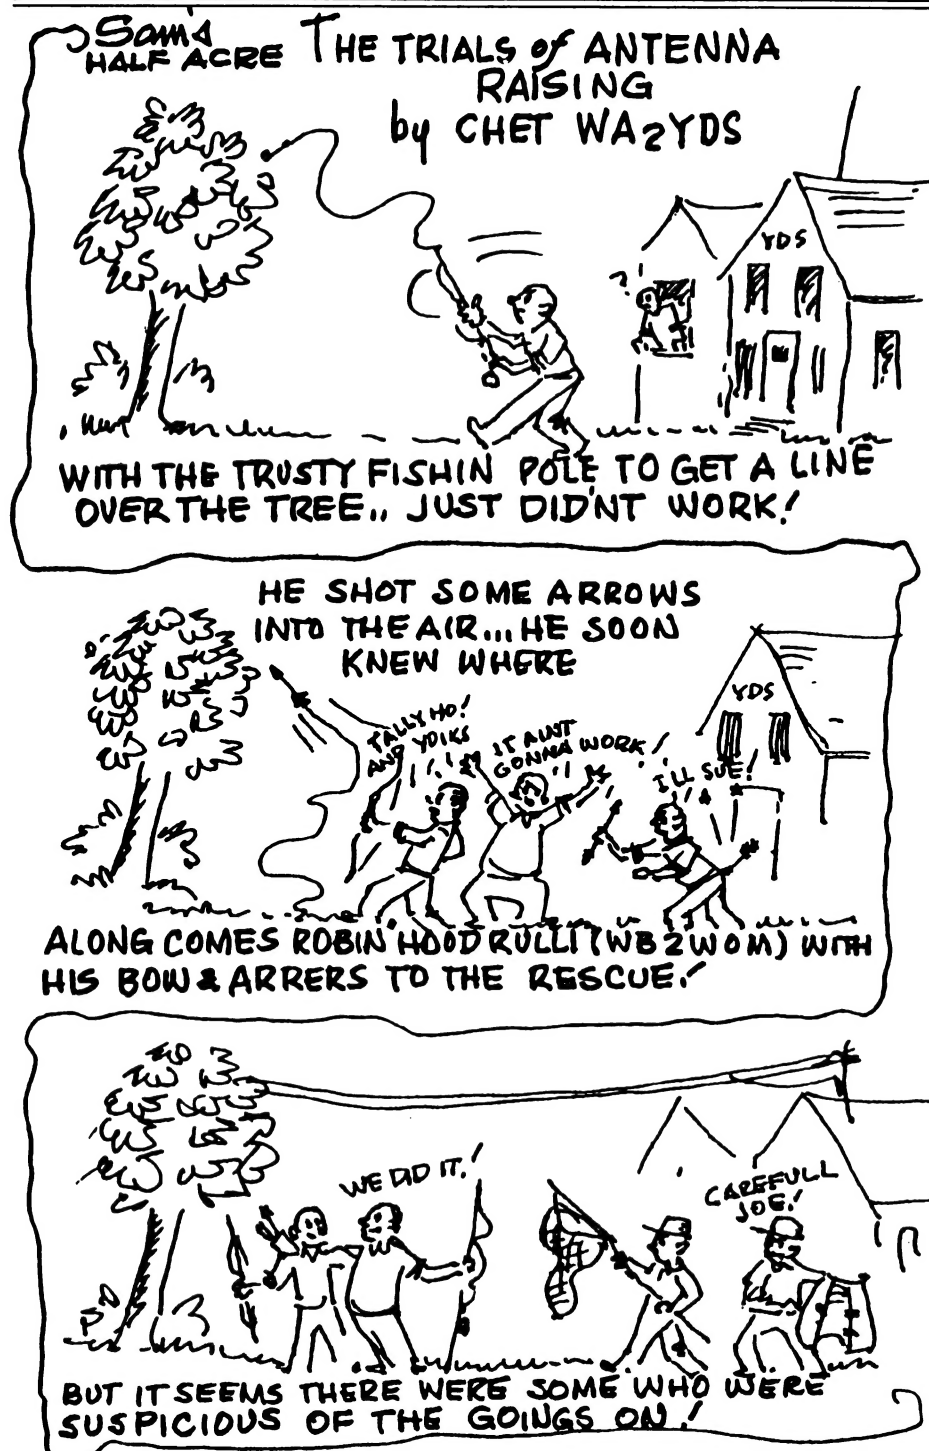 Sam's
HALF ACRE
THE TRIALS of ANTENNA
RAISING
by CHET WA2YDS
YDS
?!
WITH THE TRUSTY FISHIN POLE TO GET A LINE
OVER THE TREE.. JUST DID'NT WORK!
HE SHOT SOME ARROWS
INTO THE AIR...HE SOON
KNEW WHERE
YDS
TALLY HO!
AND YOIKS
IT AINT
GONNA WORK!
I'LL SUE!
ALONG COMES ROBIN HOOD RULLI (WB2WOM) WITH
HIS BOW & ARRERS TO THE RESCUE!
WE DID IT!
CAREFULL
JOE!
BUT IT SEEMS THERE WERE SOME WHO WERE
SUSPICIOUS OF THE GOINGS ON!